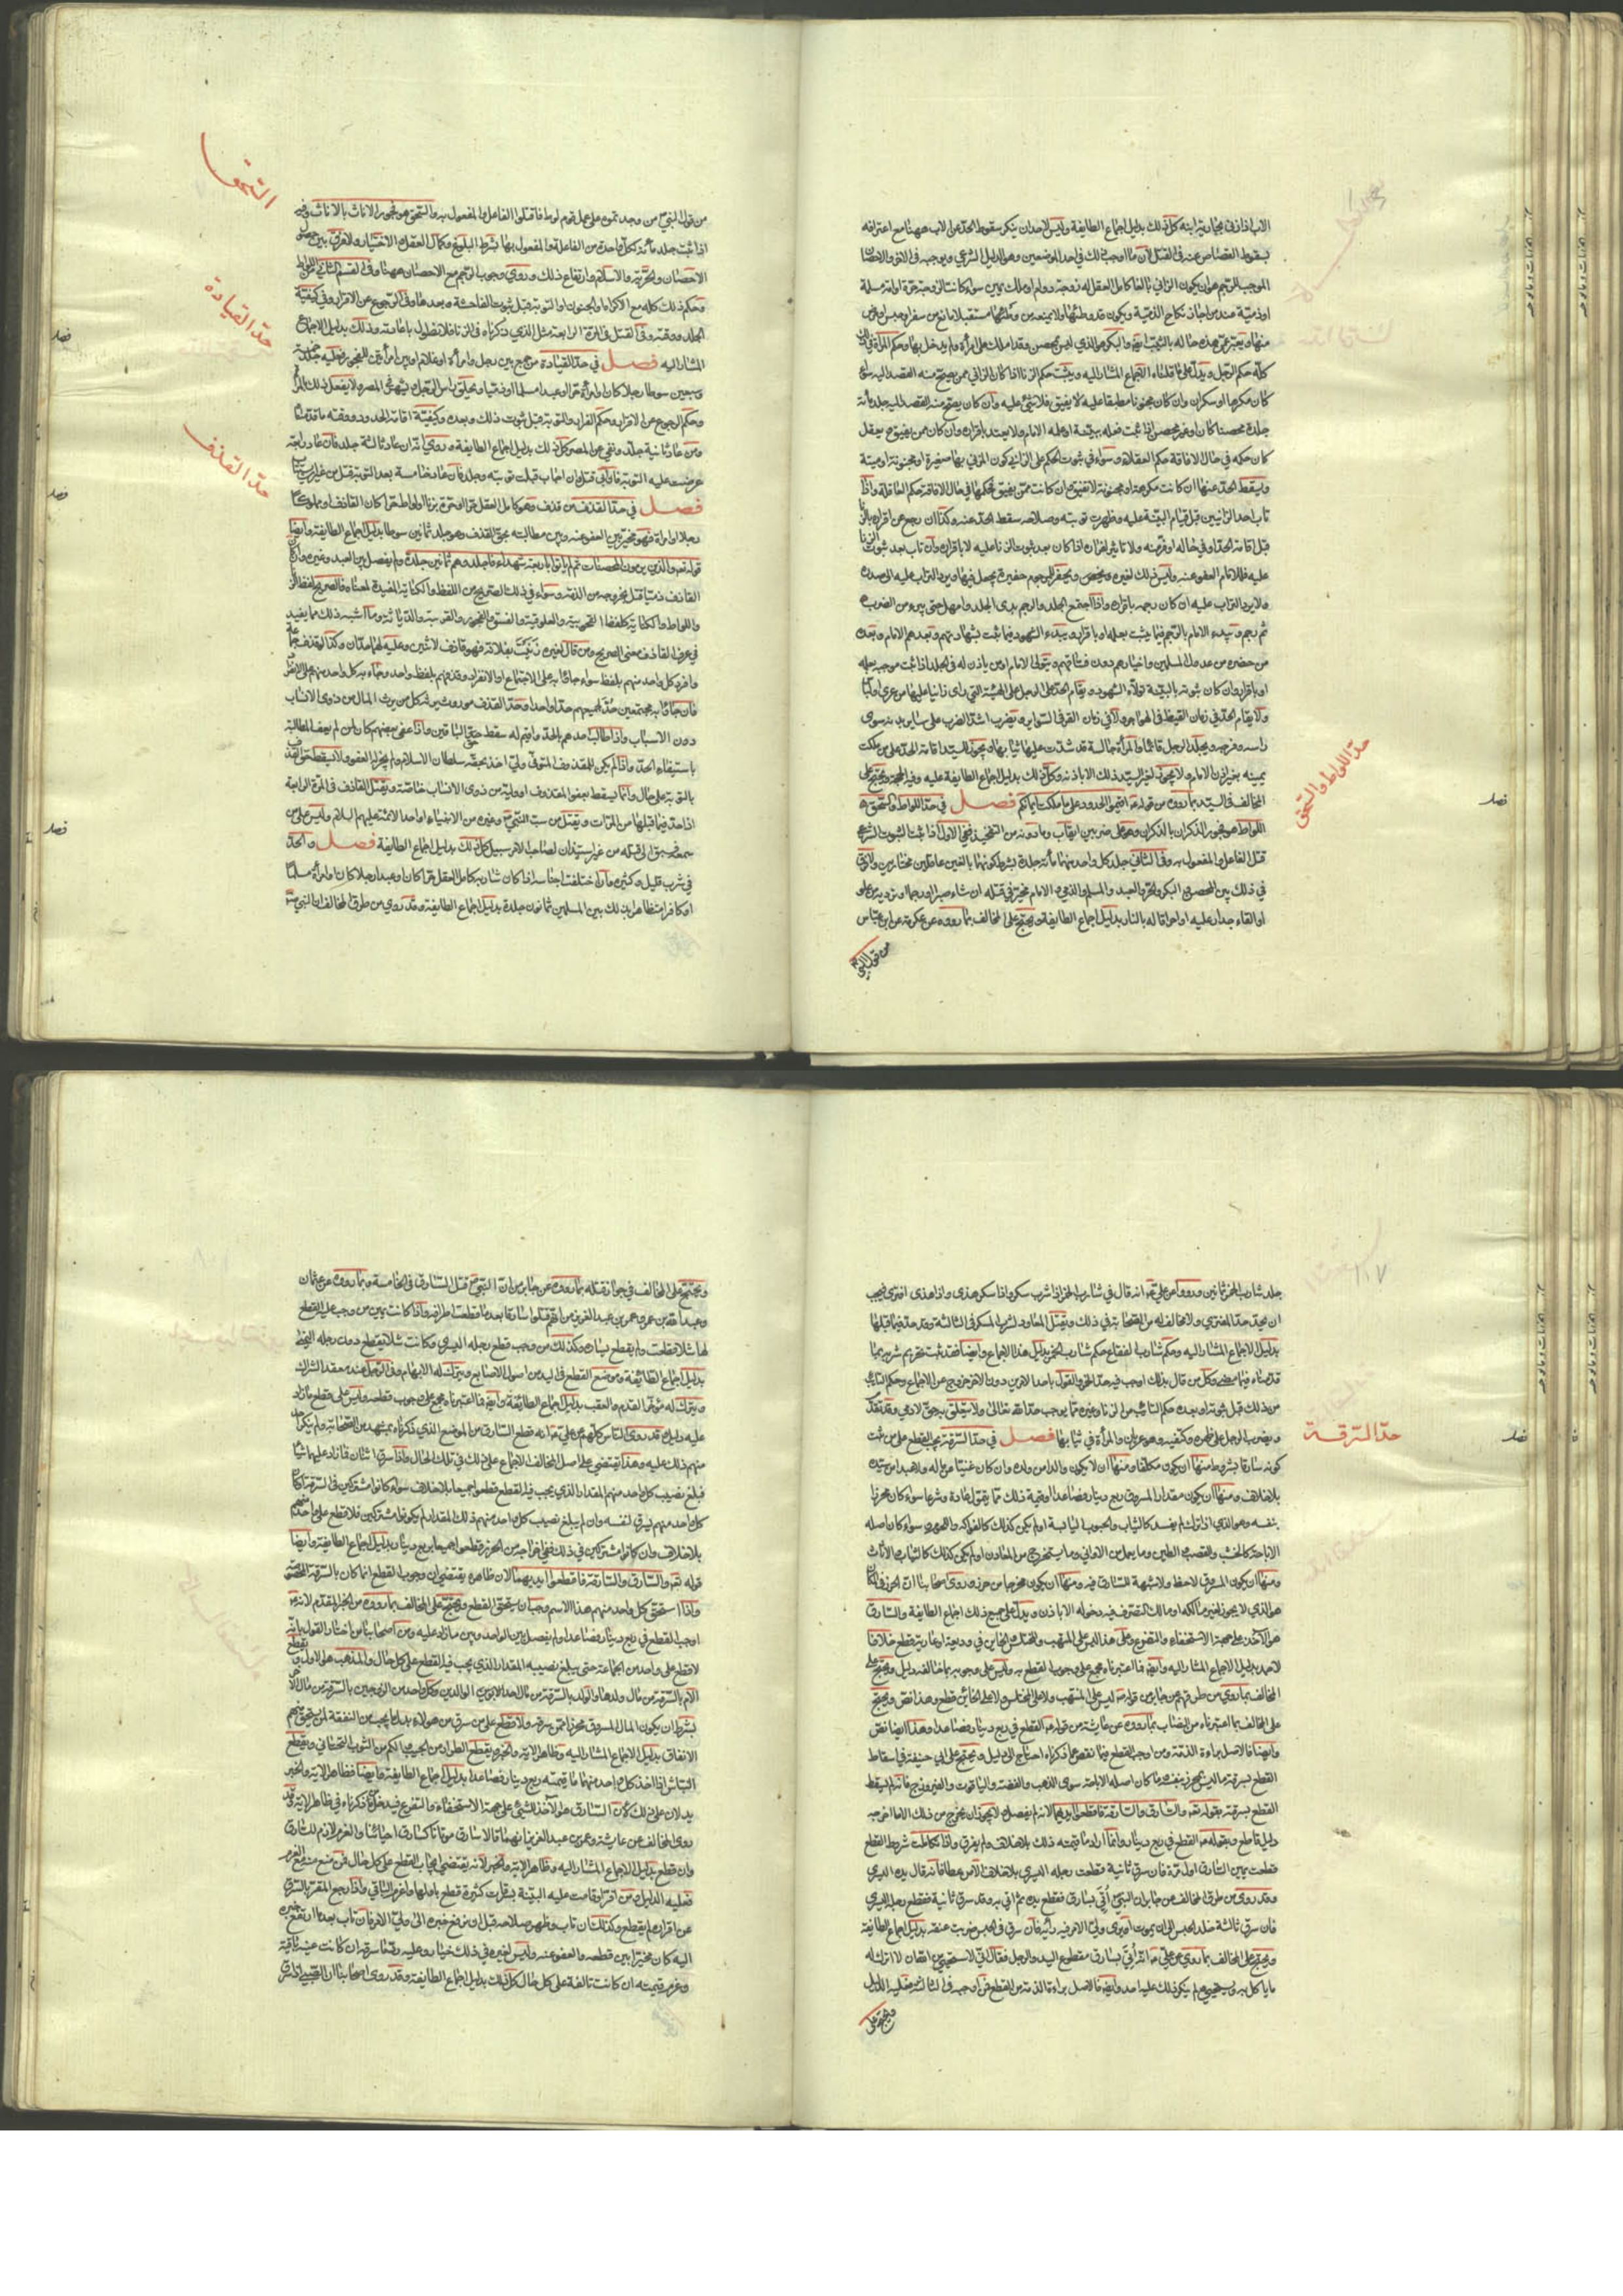 الاب اذا زنى بجارية ابنه كل ذلك بدليل اجماع الطايفة وليس لاحد ان ينكر سقوط الحد عن الاب ههنا مع اعترافه
بسقوط القصاص عنه في القتل لان ما اوجب ذلك في احد الموضعين وهو الدليل الشرعي
الموجب للرجم هو ان يكون الزاني بالغا كامل العقل له زوجة دوام او ملك يمين سواء كانت الزوجة حرة او امة مسلمة
او ذمية عند من اجاز نكاح الذمية ويكون قد وطئها ولا يمنعه من وطئها مستقبلا مانع من سفر او حبس او مرض
كله حكم الرجل ويدل على ما قلناه الاجماع المشار اليه ويثبت حكم الزنا اذا كان الزاني ممن يصح منه القصد اليه سواء
كان مكرها او سكران وان كان مجنونا مطبقا عليه لا يفيق فلا شيء عليه وان كان يصح منه القصد اليه جلد مأة
جلدة محصنا كان او غير محصن اذا ثبت فعله ببينة او علم الامام ولا يعتد باقراره وان كان ممن يفيق ويعقل
كان حكمه في حال الافاقة حكم العقلاء وسواء في ثبوت الحكم على الزاني كون المزني بها صغيرة او مجنونة او ميتة
ويسقط الحد عنها ان كانت مكرهة او مجنونة لا تفيق وان كانت ممن يفيق فحكمها في حال الافاقة حكم العاقلة واذا
تاب احد الزانيين قبل قيام البينة عليه وظهرت توبته وصلاحه سقط الحد عنه وكذا ان رجع عن اقراره بالزنا
ثم يرجم ويبدء الامام بالرجم فيما يثبت بعلمه او باقراره ويبدء الشهود فيما ثبت بشهادتهم وبعدهم الامام وبعده
من حضره من عدول المسلمين واخيارهم دون فساقهم ويتولى الامام او من ياذن له في الجلد اذا ثبت موجبه بعلمه
ولا يقام الحد في زمان القيظ في الهواجر ولا في زمان القر في السوابر ويضرب اشد الضرب على ساير بدنه سوى
راسه وفرجه ويجلد الرجل قائما والمرأة جالسة قد شدت عليها ثيابها ويجوز للسيد اقامة الحد على من ملكت
يمينه بغير اذن الامام ولا يجوز لغير السيد ذلك الا باذنه وكل ذلك بدليل اجماع الطايفة عليه وفيه الحجة ويحتج على
المخالف في السيد بما رووه من قوله ع اقيموا الحدود على ما ملكت ايمانكم فصل في حد اللواط والسحق
اللواط هو فجور الذكران بالذكران وهو على ضربين ايقاب وما دونه من التفخيذ ففي الاول اذا ثبت الثبوت الشرعي
قتل الفاعل والمفعول به وفي الثاني جلد كل واحد منهما مأة جلدة بشرط كونهما بالغين عاقلين مختارين ولا فرق
في ذلك بين المحصن والبكر والحر والعبد والمسلم والذمي والامام مخير في قتله ان شاء صبرا او رجما او ترديه من علو
او القاء جدار عليه او احراقا له بالنار بدليل اجماع الطايفة ويحتج على المخالف بما رووه عن عكرمة عن ابن عباس
من قول النبي
حد اللواط والسحق
فصل
السحق
حد القيادة
حد القذف
فصل
فصل
فصل
من قول النبي ص من وجدتموه على عمل قوم لوط فاقتلوا الفاعل والمفعول به والسحق هو فجور الاناث بالاناث وفيه
اذا ثبت جلد مأة لكل واحدة من الفاعلة والمفعول بها بشرط البلوغ وكمال العقل والاختيار ولا فرق بين حصول
الاحصان والحرية والاسلام وارتفاع ذلك وروي وجوب الرجم مع الاحصان ههنا وفي القسم الثاني من اللواط
وحكم ذلك كله مع الاكراه او الجنون او التوبة قبل ثبوت الفاحشة وبعدها وفي الرجوع عن الاقرار وفي كيفية
الجلد ووقته وفي القتل في المرة الرابعة مثل الذي ذكرناه في الزنا فلا نطول باعادته وذلك بدليل الاجماع
المشار اليه فصل في حد القيادة من جمع بين رجل وامرأة او غلام او بين امرأتين للفجور فعليه جلد خمسة
وسبعين سوطا رجلا كان او امرأة حرا او عبدا مسلما او ذميا ويحلق راس الرجل ويشهر في المصر ولا يفعل ذلك بالمرأة
وحكم الرجوع عن الاقرار وحكم الفرار والتوبة قبل ثبوت ذلك وبعده وكيفية اقامة الحد ووقته ما قدمناه
ومن عاد ثانية جلد ونفي عن المصر كل ذلك بدليل اجماع الطايفة وروي انه ان عاد ثالثة جلد فان عاد رابعة
عرضت عليه التوبة فان ابى قتل وان اجاب قبلت توبته وجلد فان عاد خامسة بعد التوبة قتل من غير ان يستتاب
فصل في حد القذف من قذف وهو كامل العقل حرا او حرة بزنا او لواط حرا كان القاذف او مملوكا
رجلا او امراة فهو مخير بين العفو عنه وبين مطالبته بحق القذف وهو جلد ثمانين سوطا بدليل اجماع الطايفة وايضا
قوله تع والذين يرمون المحصنات ثم لم ياتوا باربعة شهداء فاجلدوهم ثمانين جلدة ولم يفصل بين العبد وغيره وان كان
القاذف ذميا قتل بخروجه من الذمة وسواء في ذلك الصريح من اللفظ والكناية المفيدة لمعناه فالصريح لفظ الزنا
في عرف القاذف معنى الصريح ومن قال لغيره زنيت بفلانة فهو قاذف لاثنين وعليه لهما حدان وكذا لو قذف جماعة
دون الاسباب واذا طالب احدهم بالحد واقيم له سقط حق الباقين واذا عفى بعضهم كان لمن لم يعف المطالبة
باستيفاء الحد واذا لم يكن للمقذوف المتوفى ولي اخذ بحقه سلطان الاسلام ولم يجز له العفو ولا يسقط حق القذف
بالتوبة على حال وانما يسقط بعفو المقذوف او وليه من ذوي الانساب خاصة ويقتل القاذف في المرة الرابعة
اذا حد فيما قبلها من المرات ويقتل من سب النبي ص وغيره من الانبياء او احد الائمة عليهم السلام وليس على من
سمعه فسبق الى قتله من غير استيذان لصاحب الامر سبيل كل ذلك بدليل اجماع الطايفة فصل والحد
في شرب قليل وكثيره وان اختلفت اجناسه اذا كان شاربه كامل العقل حرا كان او عبدا رجلا كان او امرأة مسلما
او كافرا متظاهرا بذلك بين المسلمين ثمانون جلدة بدليل اجماع الطايفة وقد روي من طرق المخالف ان النبي ص
١٠٧
جلد شارب الخمر ثمانين ورووا عن علي ع انه قال في شارب الخمر اذا شرب سكر واذا سكر هذى واذا هذى افترى فيجب
ان يحد حد المفتري ولا مخالف له من الصحابة في ذلك ويقتل المعاود لشرب المسكر في الثالثة وقد حد فيما قبلها
بدليل الاجماع المشار اليه وحكم شارب الفقاع حكم شارب الخمر بدليل هذا الاجماع وايضا فقد ثبت تحريم شربه بما
قدمناه فيما مضى وكل من قال بذلك اوجب فيه حد الخمر والقول باحد الامرين دون الاخر خروج عن الاجماع وحكم التائب
ويضرب الرجل على ظهره وكتفيه وهو عريان والمرأة في ثيابها فصل في حد السرقة يجب القطع على من ثبت
كونه سارقا بشروط منها ان يكون مكلفا ومنها ان لا يكون والدا من ولده وان كان غنيا عن ماله ولا عبدا من سيده
بلا خلاف ومنها ان يكون مقدار المسروق ربع دينار فصاعدا او قيمة ذلك مما يتمول عادة وشرعا سواء كان محرزا
بنفسه وهو الذي اذا ترك لم يفسد كالثياب والحبوب اليابسة او لم يكن كذلك كالفواكه واللحوم وسواء كان اصله
الاباحة كالخشب والقصب والطين وما يعمل من الاواني وما يستخرج من المعادن او لم يكن كذلك كالثياب والاثاث
ومنها ان يكون المسروق لا حظ ولا شبهة للسارق فيه ومنها ان يكون مخرجا من حرز وروى اصحابنا ان الحرز في المكان
هو الذي لا يجوز لغير مالكه او مالك التصرف فيه دخوله الا باذن ويدل على جميع ذلك اجماع الطايفة والسارق
هو الاخذ على جهة الاستخفاء والتفزع وعلى هذا ليس على المنتهب والمختلس والخاين في وديعة او عارية قطع خلافا
لاحمد بدليل الاجماع المشار اليه وايضا فما اعتبرناه مجمع على وجوب القطع به وليس على وجوبه بما خالفه دليل ويحتج على
المخالف بما روي من طرقهم عن جابر من قوله ص ليس على المنتهب ولا على المختلس ولا على الخائن قطع وهذا نص ويحتج
على المخالف بما اعتبرناه من النصاب بما رووه عن عايشة من قوله ص القطع في ربع دينار فصاعدا وهذا ايضا نص
وايضا فالاصل براءة الذمة ومن اوجب القطع فيما نقص عما ذكرناه احتاج الى دليل ويحتج على ابي حنيفة في اسقاط
القطع بسرقة ما ليس بمحرز بنفسه وما كان اصله الاباحة سوى الذهب والفضة والياقوت والفيروزج فانه لم يسقط
القطع بسرقته بقوله تع والسارق والسارقة فاقطعوا ايديهما لانه لم يفصل ولا يجوز ان يخرج من ذلك الا ما اخرجه
دليل قاطع وبقوله ص القطع في ربع دينار وانما اراد ما قيمته ذلك بلا خلاف ولم يفرق واذا تكاملت شروط القطع
قطعت يمين السارق اول مرة فان سرق ثانية قطعت رجله اليسرى بلا خلاف الا من عطا فانه قال يده اليسرى
وقد روي من طرق المخالف عن جابر ان النبي ص اُتي بسارق فقطع يده ثم اتي به وقد سرق ثانية فقطع رجله اليسرى
فان سرق ثالثة خلد الحبس الى ان يموت او يرى ولي الامر فيه رأيه فان سرق في الحبس ضربت عنقه بدليل اجماع الطايفة
ويحتج على المخالف بما روي عن علي ع انه اُتي بسارق مقطوع اليد والرجل فقال اني لاستحيي من الله ان لا اترك له
ما ياكل به ويستنجي به ولم ينكر ذلك عليه احد وايضا فالاصل براءة الذمة من القطع فمن اوجبه في الثالثة فعليه الدليل
ويحتج على
حد السرقة
فصل
ويحتج على المخالف في جواز قتله بما رووه عن جابر من ان النبي ص قتل السارق في الخامسة وبما رووه عن عثمان
وعبد الله بن عمر وعمر بن عبد العزيز من انهم قتلوا سارقا بعد ما قطعت اطرافه واذا كانت يمين من وجب عليه القطع
لها شلاء قطعت ولم يقطع يساره وكذلك من وجب قطع رجله اليسرى وكانت شلاء يقطع دون رجله اليمنى
بدليل اجماع الطائفة وموضع القطع في اليد من اصول الاصابع ويترك له الابهام وفي الرجل عند معقد الشراك
ويترك له مؤخر القدم والعقب بدليل اجماع الطائفة وايضا فما اعتبرناه مجمع على وجوب قطعه وليس على قطع ما زاد
عليه دليل وقد روى الناس كلهم عن علي ع انه قطع السارق من الموضع الذي ذكرناه بمشهد من الصحابة ولم ينكر احد
منهم ذلك عليه وهذا يقتضي على اصل المخالف الاجماع على ذلك في تلك الحال واذا سرق اثنان فما زاد عليهما شيئا
فبلغ نصيب كل واحد منهم المقدار الذي يجب فيه القطع قطعوا جميعا بلا خلاف سواء كانوا مشتركين في السرقة او كان
كل واحد منهم يسرق لنفسه وان لم يبلغ نصيب كل واحد منهم ذلك المقدار ولم يكونوا مشتركين فلا قطع على احد منهم
بلا خلاف وان كانوا مشتركين في ذلك وفي اخراجه من الحرز قطعوا جميعا بربع دينار بدليل اجماع الطايفة وايضا
قوله تع والسارق والسارقة فاقطعوا ايديهما لان ظاهره يقتضي ان وجوب القطع انما كان بالسرقة المخصوصة
واذا استحق كل واحد منهم هذا الاسم وجب ان يستحق القطع ويحتج على المخالف بما رووه من الخبر المتقدم لانه ص
اوجب القطع في ربع دينار فصاعدا ولم يفصل بين الواحد وبين ما زاد عليه ومن اصحابنا من اختار القول بانه
لا قطع على واحد من الجماعة حتى يبلغ نصيبه المقدار الذي يجب فيه القطع على كل حال والمذهب هو الاول ويقطع
الام بالسرقة من مال ولدها والولد بالسرقة من مال احد الابوين او الوالدين وكل واحد من الزوجين بالسرقة من مال الاخر
بشرط ان يكون المال المسروق محرزا عمن سرقه ولا قطع على من سرق من هولاء بدل ما يجب من النفقة لمن يستحق منهم
الانفاق بدليل الاجماع المشار اليه وظاهر الاية والخبر ويقطع الطرار من الجيب والكم من الثوب التحتاني ويقطع
النباش اذا اخذ كل واحد منهما ما قيمته ربع دينار فصاعدا بدليل اجماع الطايفة وايضا فظاهر الاية والخبر
يدلان على ذلك لان السارق هو الاخذ الشيء على جهة الاستخفاء والتفزع فيدخل من ذكرناه في ظاهر الاية وقد
روى المخالف عن عايشة وعمر بن عبد العزيز انهما قالا سارق موتانا كسارق احيائنا والغرم لازم للسارق
وان قطع بدليل الاجماع المشار اليه وظاهر الاية والخبر لانه يقتضي ايجاب القطع على كل حال فمن منع منه مع الغرم
فعليه الدليل ومن اقر او قامت عليه البينة بسرقات كثيرة قطع باولها واغرم الباقي واذا رجع المقر بالسرقة
عن اقراره لم يقطع وكذلك ان تاب وظهر صلاحه قبل ان يرفع خبره الى ولي الامر فان تاب بعد ما ارتفع خبره
اليه كان مخيرا بين قطعه والعفو عنه وليس لغيره في ذلك خيار وعليه رد ما سرقه ان كانت عينه باقية
وغرم قيمته ان كانت تالفة على كل حال كل ذلك بدليل اجماع الطايفة وقد روى اصحابنا ان الصبي اذا سرق